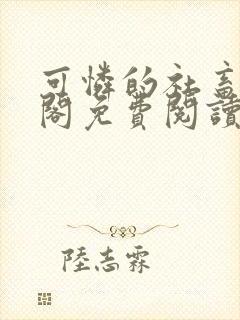 可憐的社畜
閣免費閱讀
陸志霖